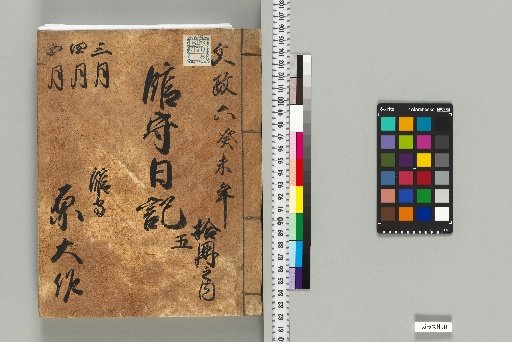 文政六癸未年
拾冊之内
五
館守日記
三月
四月
五月
館守
原大作